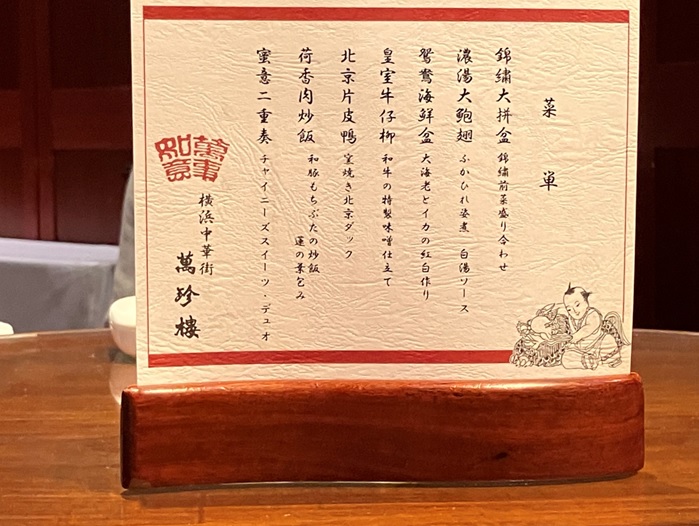 菜単
錦繡大拼盆 錦繡前菜盛り合わせ
濃湯大鮑翅 ふかひれ姿煮 白湯ソース
鴛鴦海鮮盆 大海老とイカの紅白作り
皇室牛仔柳 和牛の特製味噌仕立て
北京片皮鴨 窯焼き北京ダック
荷香肉炒飯 和豚もちぶたの炒飯
蓮の葉包み
蜜意二重奏 チャイニーズスイーツ・デュオ
萬事如意
横浜中華街
萬珍樓